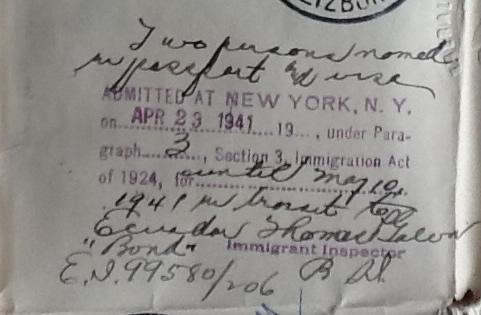 LIZBON
Two persons named
in passport and visa
ADMITTED AT NEW YORK, N. Y.
on APR 23 1941 19..., under Para-
graph 3, Section 3, Immigration Act
of 1924, for until May 10,
1941 in transit to
Ecuador Thomas
"Bond" Immigrant Inspector
E.I. 99580/206